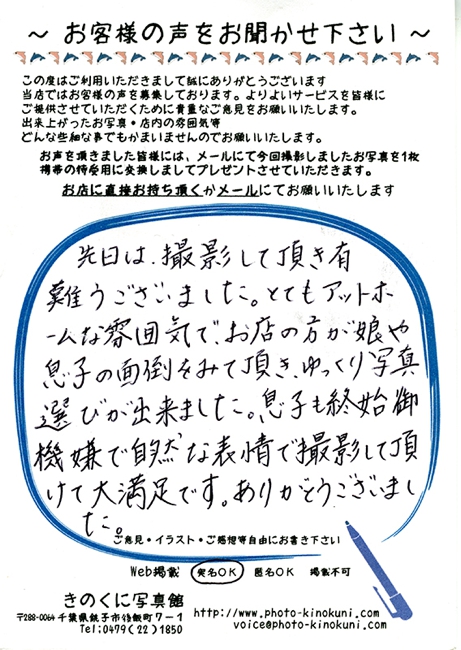 ～ お客様の声をお聞かせ下さい ～
この度はご利用いただきまして誠にありがとうございます
当店ではお客様の声を募集しております。よりよいサービスを皆様に
ご提供させていただくために貴重なご意見をお願いいたします。
出来上がったお写真・店内の雰囲気等
どんな些細な事でもかまいませんのでお願いいたします。
お声を頂きました皆様には、メールにて今回撮影しましたお写真を1枚
携帯の待受用に交換しましてプレゼントさせていただきます。
お店に直接お持ち頂くかメールにてお願いいたします
先日は、撮影して頂き有
難うございました。とてもアットホ
ームな雰囲気で、お店の方が娘や
息子の面倒をみて頂き、ゆっくり写真
選びが出来ました。息子も終始御
機嫌で自然な表情で撮影して頂
けて大満足です。ありがとうございまし
た。
ご意見・イラスト・ご感想等自由にお書き下さい
Web掲載 実名OK 匿名OK 掲載不可
きのくに写真館
〒288-0064 千葉県銚子市飯町7-1
Tel:0479(22)1850
http://www.photo-kinokuni.com
voice@photo-kinokuni.com